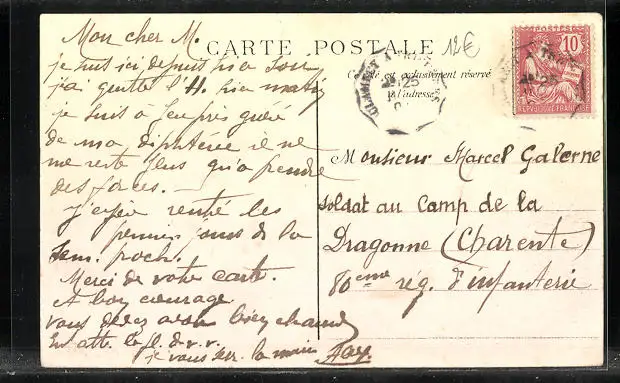 Mon cher M.
je suis ici depuis hier soir
j'ai quitté l'H. hier matin
je suis à peu près guéri
de ma diphtérie il ne
me reste plus qu'à prendre
des forces. —
J'espère rentré les
premiers jours de la
sem. proch.
Merci de votre carte.
A bon courage
vous devez avoir bien chaud
En att. le p. d. v. r.
je vous serr. la main
CARTE POSTALE
12€
Côté exclusivement réservé
à l'adresse
25
POSTES
10
RÉPUBLIQUE FRANÇAISE
Monsieur Marcel Galerne
soldat au Camp de la
Dragonne (Charente)
80eme rég. d'infanterie